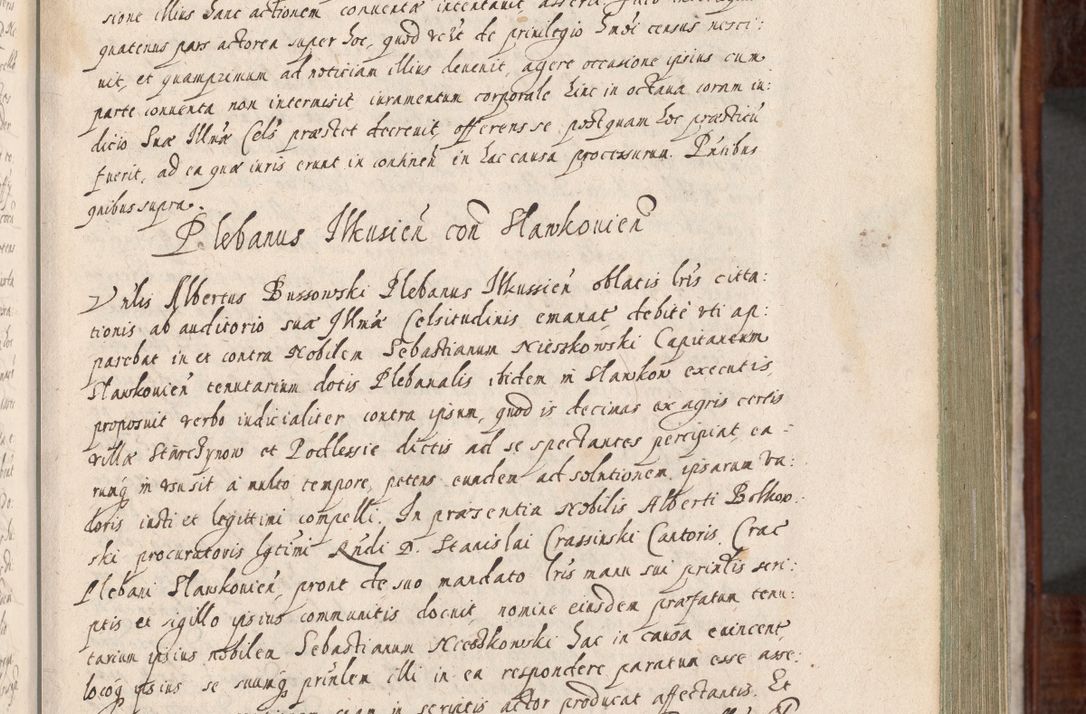 sione illius hanc actionem conventæ intentavit asseru
quatenus pars actorea super hoc, quod ve't de privilegio hm̃õi census nesci:
uit, et quamprimum ad noticiam illius devenit, agere occasione ipsius cum
parte conventa non intermisit iuramentum corporale hinc in octava coram iu:
dicio Suæ Illmæ Cels præstet decrevit, offerens se, postquam hoc præstitū
fuerit, ad ea quæ iuris erunt in continen̄ in hac causa processurum. Pñtibus
quibus supra.
Plebanus Ilkusien̄ con̄ Slawkovien̄
Vñlis Albertus Bussowski Plebanus Ilkussien̄ oblatis lris citta:
tionis ab auditorio suæ Illmæ Celsitudinis emanat̄ debitè uti ap:
parebat in et contra Nobilem Sebastianum Nieszkowski Capitaneum
Slawkovien̄ tenutarium dotis Plebanalis ibidem in Slawkow executis,
proposuit verbo iudicialiter contra ipsum, quod is decimas ex agris certis
villæ Starczynow et Podlessie dictis ad se spectantes percipiat, ea:
rumq̃ in usu sit à multo tempore, petens eundem ad solutionem ipsarum va:
loris iusti et legittimi compelli. In præsentia Nobilis Alberti Bolkow:
ski procuratoris lgtimi Rñdi D. Stanislai Crassinski Cantoris Crac̄
Plebani Slawkovien̄, prout de suo mandato lris manu sui prinlis scri:
ptis et sigillo ipsius communitis docuit, nomine eiusdem præfatum tenu:
tarium ipsius nobilem Sebastianum Nieszkowski hac in causa evincent,
locoq̃ ipsius se suumq̃ prinlem illi in ea respondere paratum esse asse:
in scriptis actor producat affectantis. Et